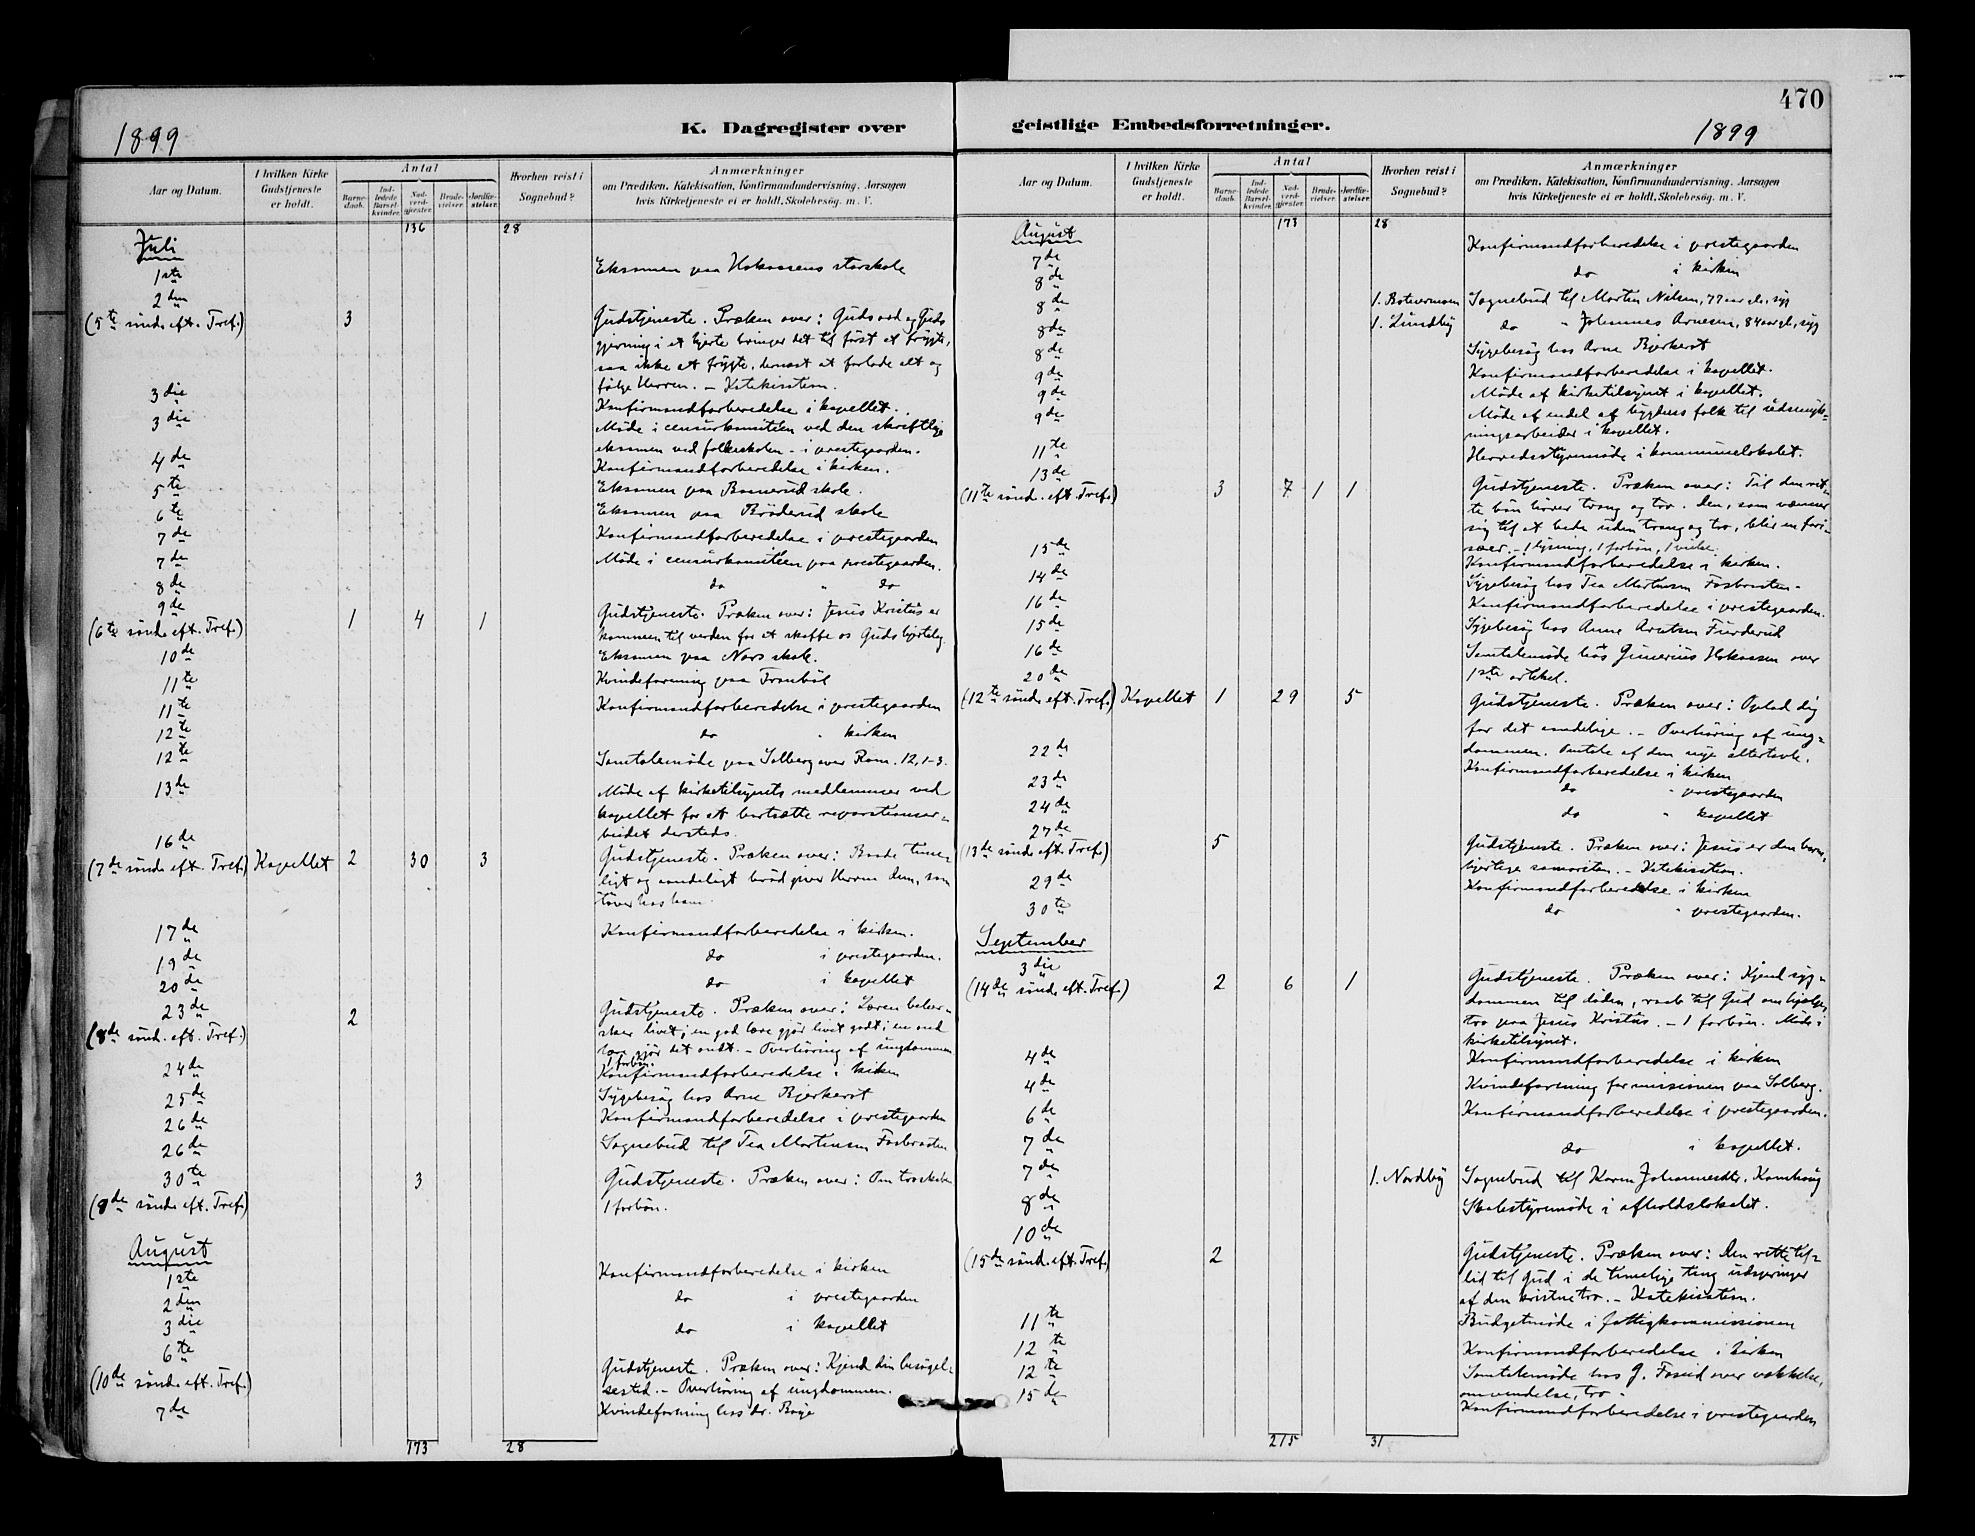 1899
K. Dagregister over
Aar og Datum.
I hvilken Kirke Gudstjeneste er holdt.
Antal
Barnedaab.
Indledede Barselkvinder.
Nadverdgjester.
Brudevielser.
Jordfæstelser.
Hvorhen reist i Sognebud?
Anmærkninger
om Prædiken, Katekisation, Konfirmandundervisning, Aarsagen
hvis Kirketjeneste ei er holdt, Skolebesög. m. V.
136 28
Juli
1ste Eksamen paa Hokaasens storskole
2den
(5te sönd. eft. Tref.) 3 Gudstjeneste. Præken over: Guds ord og Guds
gjerning i et hjerte bringer det til først at frygte,
saa ikke at frygte, dernæst at forlade alt og
følge Herren. – Katekisation.
3die Konfirmandforberedelse i kapellet.
3die Møde i censurkomiteen ved den skriftlige
eksamen ved folkeskolen – i prestegaarden.
4de Konfirmandforberedelse i kirken.
5te Eksamen paa skole.
6te Eksamen paa Bröderud skole
7de Konfirmandforberedelse i prestegaarden
7de Møde i censurkomiteen paa prestegaarden.
8de do " do
9de
(6te sönd. eft. Tref.) 1 4 1 Gudstjeneste. Præken over: Jesus Kristus er
kommen til verden for at skaffe os Guds
10de Eksamen paa Nors skole.
11te Kvindeforening paa Tronböl
11te Konfirmandforberedelse i prestegaarden
12te do " kirken
12te Samtalemøde paa Solberg over Rom. 12,1-3.
13de Møde af kirketilsynets medlemmer ved
kapellet for at bortsætte reparationsar-
beidet dersteds.
16de
(7de sönd. eft. Tref.) Kapellet 2 30 3 Gudstjeneste. Præken over: Baade time-
ligt og aandeligt bröd giver Herren dem, som
töver hos ham.
17de Konfirmandforberedelse i kirken.
19de do i prestegaarden.
20de do i kapellet
23de
(8de sönd. eft. Tref.) 2 Gudstjeneste. Præken over: Læren beher-
sker livet; en god lære gjør livet godt; en ond
lære gjør det ondt. – Overhöring af ungdommen
1 forbön.
24de Konfirmandforberedelse i kirken
25de Sygebesög hos Arne Bjerkerst
26de Konfirmandforberedelse i prestegaarden
26de Sognebud til Tea Martinsen Fosbraaten
30te 3 Gudstjeneste. Præken over: Om troskaben
(9de sönd. eft. Tref.) 1 forbön.
August
1ste Konfirmandforberedelse i kirken
2den do i prestegaarden
3die do i kapellet
6te
(10de sönd. eft. Tref.) Gudstjeneste. Præken over: Kjend din besögel-
sestid. – Overhöring af ungdommen.
7de Kvindeforening hos dr. Boye
173 28
470
geistlige Embedsforretninger.
1899
Aar og Datum.
I hvilken Kirke Gudstjeneste er holdt.
Antal
Barnedaab.
Indledede Barselkvinder.
Nadverdgjester.
Brudevielser.
Jordfæstelser.
Hvorhen reist i Sognebud?
Anmærkninger
om Prædiken, Katekisation, Konfirmandundervisning, Aarsagen
hvis Kirketjeneste ei er holdt, Skolebesög. m. V.
173 28
August
7de Konfirmandforberedelse i prestegaarden
8de do i kirken
8de 1. Sognebud til Martin Nilsen, 77 aar gl., syg
8de 1. Lundby do " Johannes Arnesen, 84 aar gl., syg
8de Sygebesög hos Arne Bjerkerst
9de Konfirmandforberedelse i kapellet.
9de Møde af kirketilsynet i kapellet.
9de Møde af endel af bygdens folk til udsmyk-
ningsarbeider i kapellet.
11te Herredsstyremøde i kommunelokalet.
13de
(11te sönd. eft. Tref.) 3 7 1 1 Gudstjeneste. Præken over: Til den ret-
te bön hører trang og tro. Den, som vænner
sig til at bede uden trang og tro, blir en fari-
sæer. – 1 lysning, 1 forbön, 1 vielse.
15de Konfirmandforberedelse i kirken.
14de Sygebesög hos Tea Martinsen Fosbraaten.
16de Konfirmandforberedelse i prestegaarden.
15de Sygebesög hos Anne Arntsen Furderud
16de Samtalemøde hos Gunerius Hokaasen over
1ste artikel.
20de
(12te sönd. eft. Tref.) Kapellet 1 29 5 Gudstjeneste. Præken over: Oplad dig
for det aandelige. – Overhöring af ung-
dommen. Omtale af den nye altertavle.
22de Konfirmandforberedelse i kirken
23de do " prestegaarden
24de do " kapellet
27de
(13de sönd. eft. Tref.) 5 Gudstjeneste. Præken over: Jesus er den barm-
hjertige samaritan. – Katekisation.
29de Konfirmandforberedelse i kirken
30te do " prestegaarden.
September
3die
(14de sönd. eft. Tref.) 2 6 1 Gudstjeneste. Præken over: Kjend syg-
dommen til döden, raab til Gud om hjælpe,
tro paa Jesus Kristus. – 1 forbön. Møde i
kirketilsynet.
4de Konfirmandforberedelse i kirken
4de Kvindeforening for missionen paa Solberg.
6de Konfirmandforberedelse i prestegaarden.
7de do i kapellet.
7de 1. Nordby Sognebud til Karen Johannesdtr. Kamhaug
8de Skolestyremøde i afholdslokalet.
10de
(15de sönd. eft. Tref.) 2 Gudstjeneste. Præken over: Den rette til-
lid til Gud i de timelige ting udspringer
af den kristne tro. – Katekisation.
11te Budgetmøde i fattigkommissionen
12te Konfirmandforberedelse i kirken
12te Samtalemøde hos G. Fosud over vækkelse,
omvendelse, tro.
15de Konfirmandforberedelse i prestegaarden
215 31